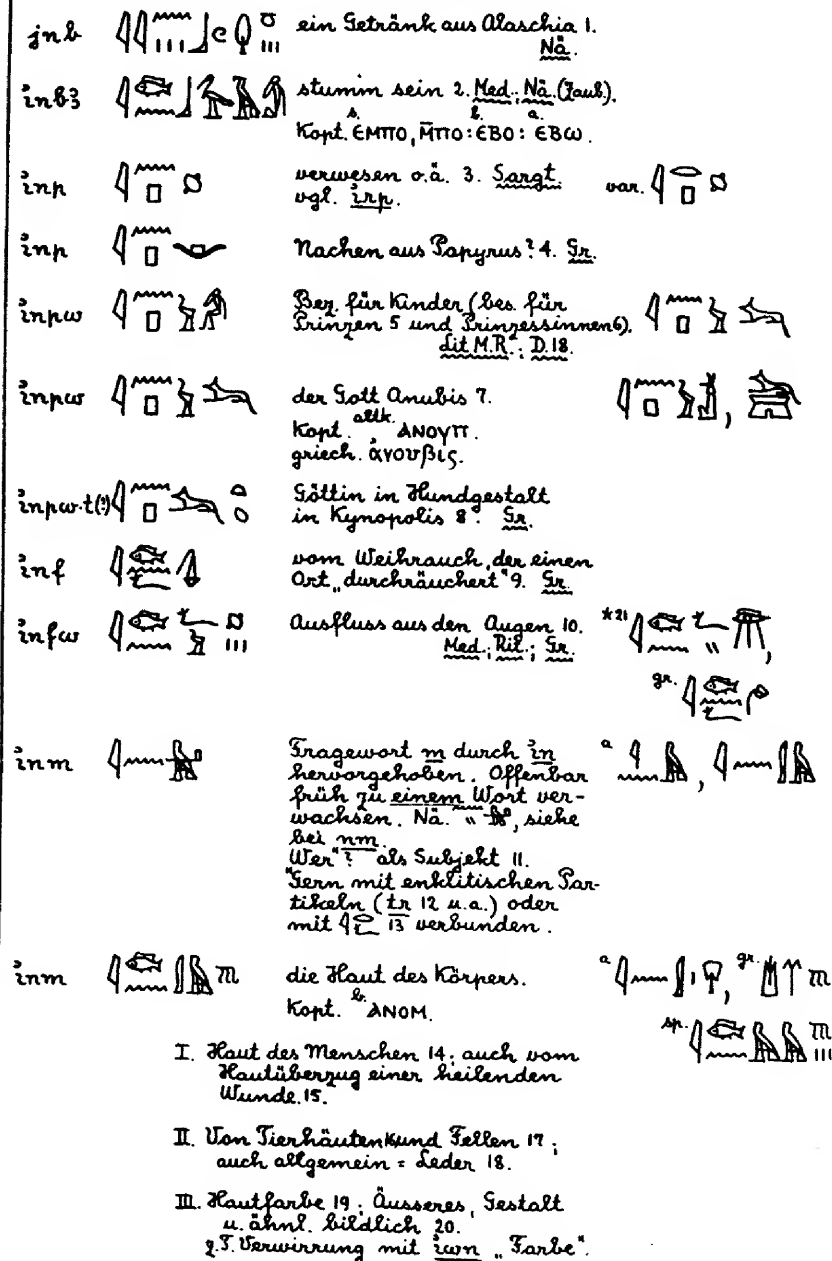 jnb ein Getränk aus Alaschia 1.
Nä.
ı͗nbꜣ stumm sein 2. Med.; Nä. (Zaub.).
s. b. a.
Kopt. ⲉⲙⲡⲟ, ⲙ̄ⲡⲟ : ⲉⲃⲟ : ⲉⲃⲱ.
ı͗np verwesen o.ä. 3. Sargt. var.
vgl. ı͗rp.
ı͗np Nachen aus Papyrus? 4. Gr.
ı͗npw Bez. für Kinder (bes. für
Prinzen 5 und Prinzessinnen 6).
Lit. M.R.; D.18.
ı͗npw der Gott Anubis 7.
Kopt. altk. ⲁⲛⲟⲩⲡ.
griech. ἀνουβις.
ı͗npw.t(?) Göttin in Hundgestalt
in Kynopolis 8. Gr.
ı͗nf vom Weihrauch, der einen
Ort „durchräuchert" 9. Gr.
ı͗nfw Ausfluss aus den Augen 10. *21
Med.; Rit.; Gr.
gr.
ı͗nm Fragewort m durch ı͗n a
hervorgehoben. Offenbar
früh zu einem Wort ver-
wachsen. Nä. , siehe
bei nm.
„Wer"? als Subjekt 11.
Gern mit enklitischen Par-
tikeln (tr 12 u.a.) oder
mit 13 verbunden.
ı͗nm die Haut des Körpers. a gr.
Kopt. b. ⲁⲛⲟⲙ. sp.
I. Haut des Menschen 14; auch vom
Hautüberzug einer heilenden
Wunde. 15.
II. Von Tierhäuten und Fellen 17;
auch allgemein = Leder 18.
III. Hautfarbe 19; Äusseres, Gestalt
u. ähnl. bildlich 20.
z.T. Verwirrung mit ı͗wn „Farbe".